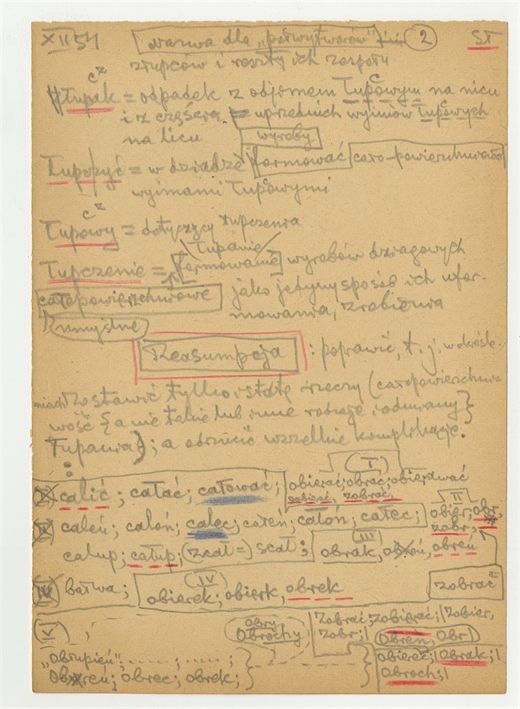 XII 54 Nazwa dla „półwytworów" 2 ST
złupców i reszty ich zespoły
Łupak = odpadek z odjemem Łupcowym na nicu
i z częścią uprzednich wyjmów Łupcowych
na licu wyroby
Łupczyć = w dziadzie formować cało-powierzchniowo
wyjmami Łupcowymi
Łupcowy = dotyczący Łupczenia
Łupanie
Łupczenie = formowanie wyrobów dziagowych
całopowierzchniowe jako jedyny sposób ich ufor-
mowania, zrobienia
Rozmyślne
Reasumpcja : poprawić, t. j. w określe-
niach zostawić tylko istotę rzeczy (całopowierzchnio
wość {a nie takie lub inne rodzaje i odmiany}
Łupania); a odrzucić wszelkie komplikacje.
I
calić; całać; całować; obierać; obrać; obierdwać
II
caleń; caloń; calec; całeń; całoń; całec; obier; obr
zobr
całup; całup; (zcal=) scal; III obrak, obreń
IV bałwa; IV obierek; obierk, obrek zobrać
V Obry Obrochy zobrać; zobierać; zobier,
zobr; Obreń, Obr
„Obłupień"
Obreń; obrec; obrek; obierz; Obrak;
Obroch;